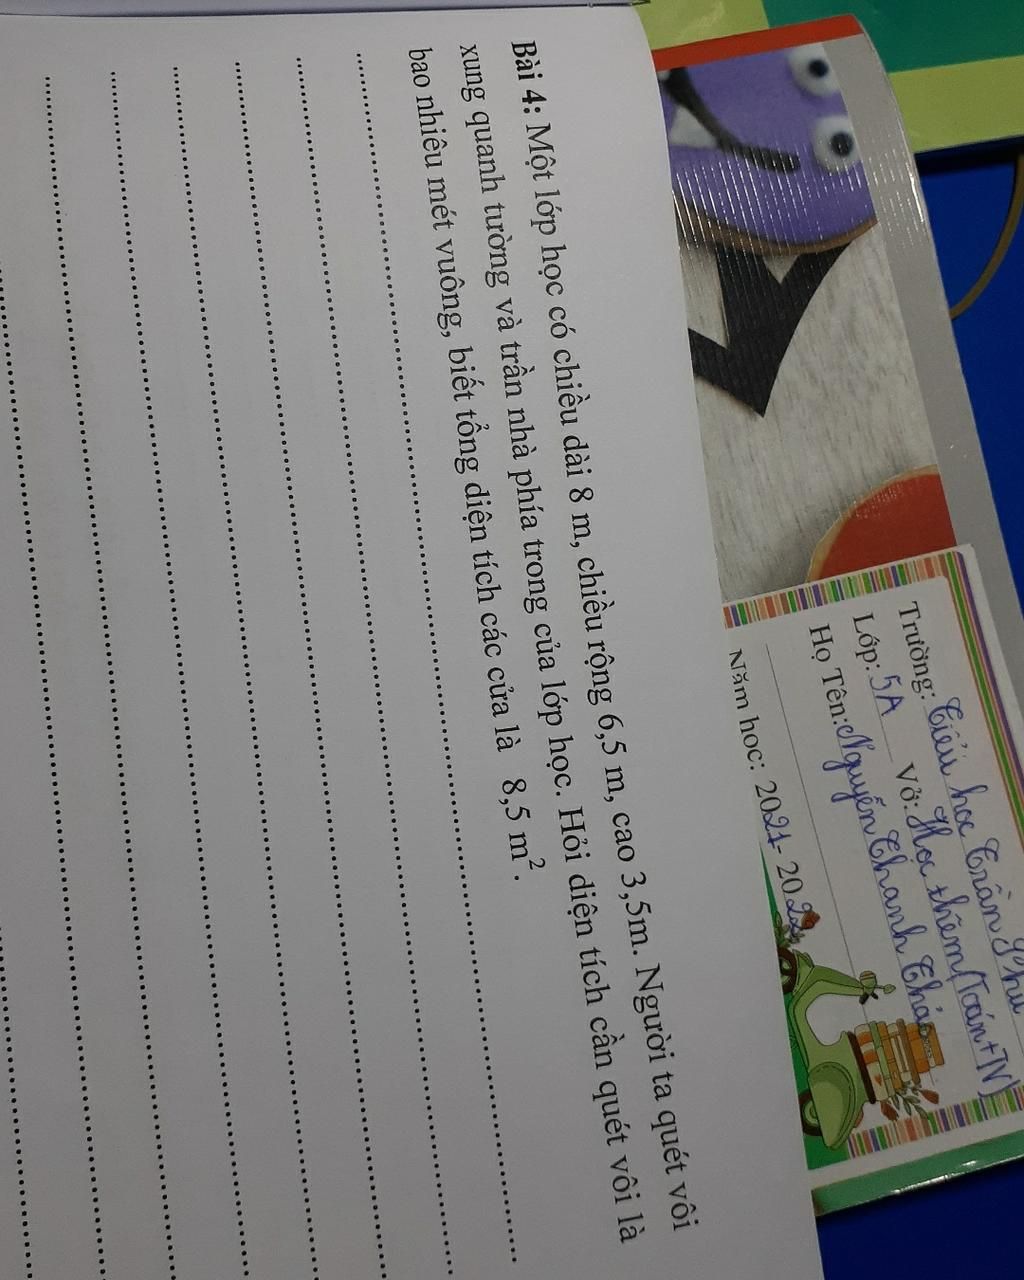 Bài 4: Một lớp học có chiều dài 8 m, chiều rộng 6,5 m, cao 3,5m. Người ta quét vôi
xung quanh tường và trần nhà phía trong của lớp học. Hỏi diện tích cần quét vôi là
bao nhiêu mét vuông, biết tổng diện tích các cửa là 8,5 m².
Trường: Tiểu học Trần Phú
Lớp: 5A Vở: Học thêm (Toán+TV)
Họ Tên: Nguyễn Thanh Thảo
Năm học: 2021-2022